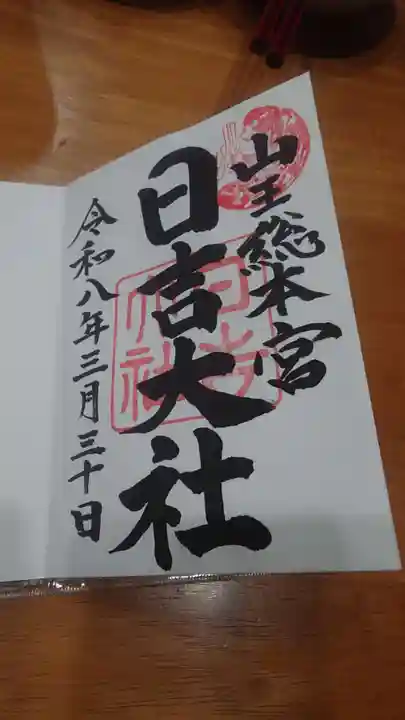 山王総本宮
日吉大社
令和八年三月三十日
日吉
大社